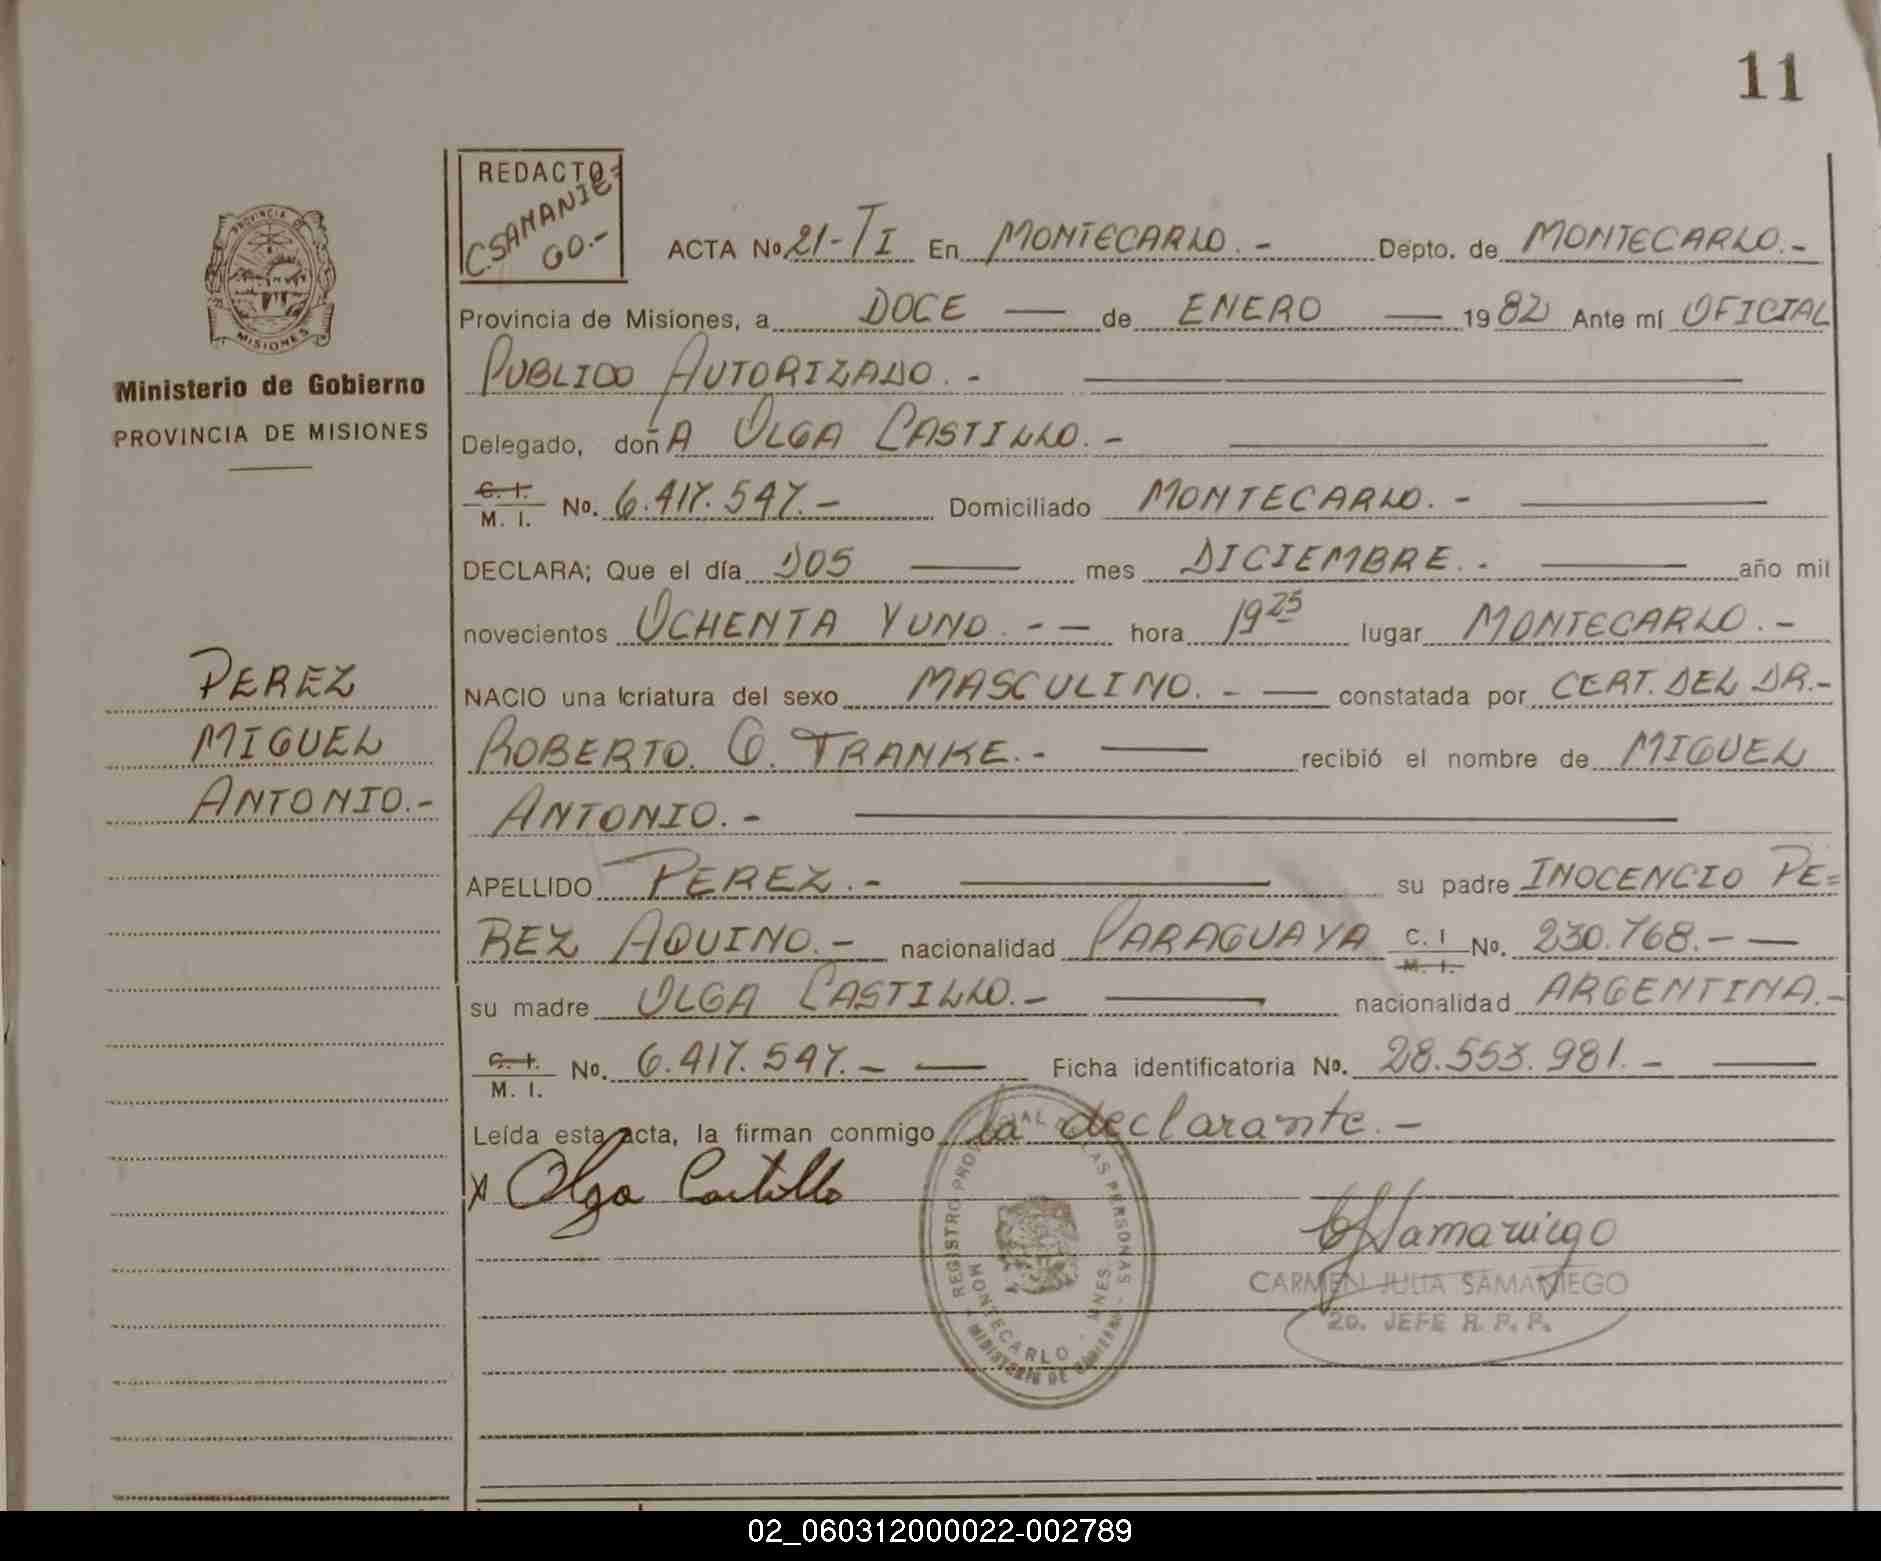 11
REDACTO
C. SAMANIE=
GO.-
ACTA No 21-TI En MONTECARLO.- Depto. de MONTECARLO.-
Provincia de Misiones, a DOCE — de ENERO — 1982 Ante mí OFICIAL
PUBLICO AUTORIZADO.-
Delegado, doñA OLGA CASTILLO.-
C. I.
M. I. No. 6.417.547.- Domiciliado MONTECARLO.-
DECLARA; Que el día DOS — mes DICIEMBRE.- año mil
novecientos OCHENTA Y UNO.-- hora 19 25 lugar MONTECARLO.-
NACIO una criatura del sexo MASCULINO.- — constatada por CERT. DEL DR.-
ROBERTO. O. TRANKE.- — recibió el nombre de MIGUEL
ANTONIO.-
APELLIDO PEREZ.- — su padre INOCENCIO PE=
REZ AQUINO.- nacionalidad PARAGUAYA C. I
M. I. No. 230.768.-
su madre OLGA CASTILLO.- — nacionalidad ARGENTINA.-
C. I.
M. I. No. 6.417.547.- — Ficha identificatoria No. 28.553.981.-
Leída esta acta, la firman conmigo la declarante.-
X Olga Castillo
CJSamaniego
CARMEN JULIA SAMANIEGO
2o. JEFE R. P. P.
REGISTRO PROVINCIAL DE LAS PERSONAS
MONTECARLO - MNES
MINISTERIO DE GOBIERNO
PROVINCIA DE
MISIONES
Ministerio de Gobierno
PROVINCIA DE MISIONES
PEREZ
MIGUEL
ANTONIO.-
02_060312000022-002789